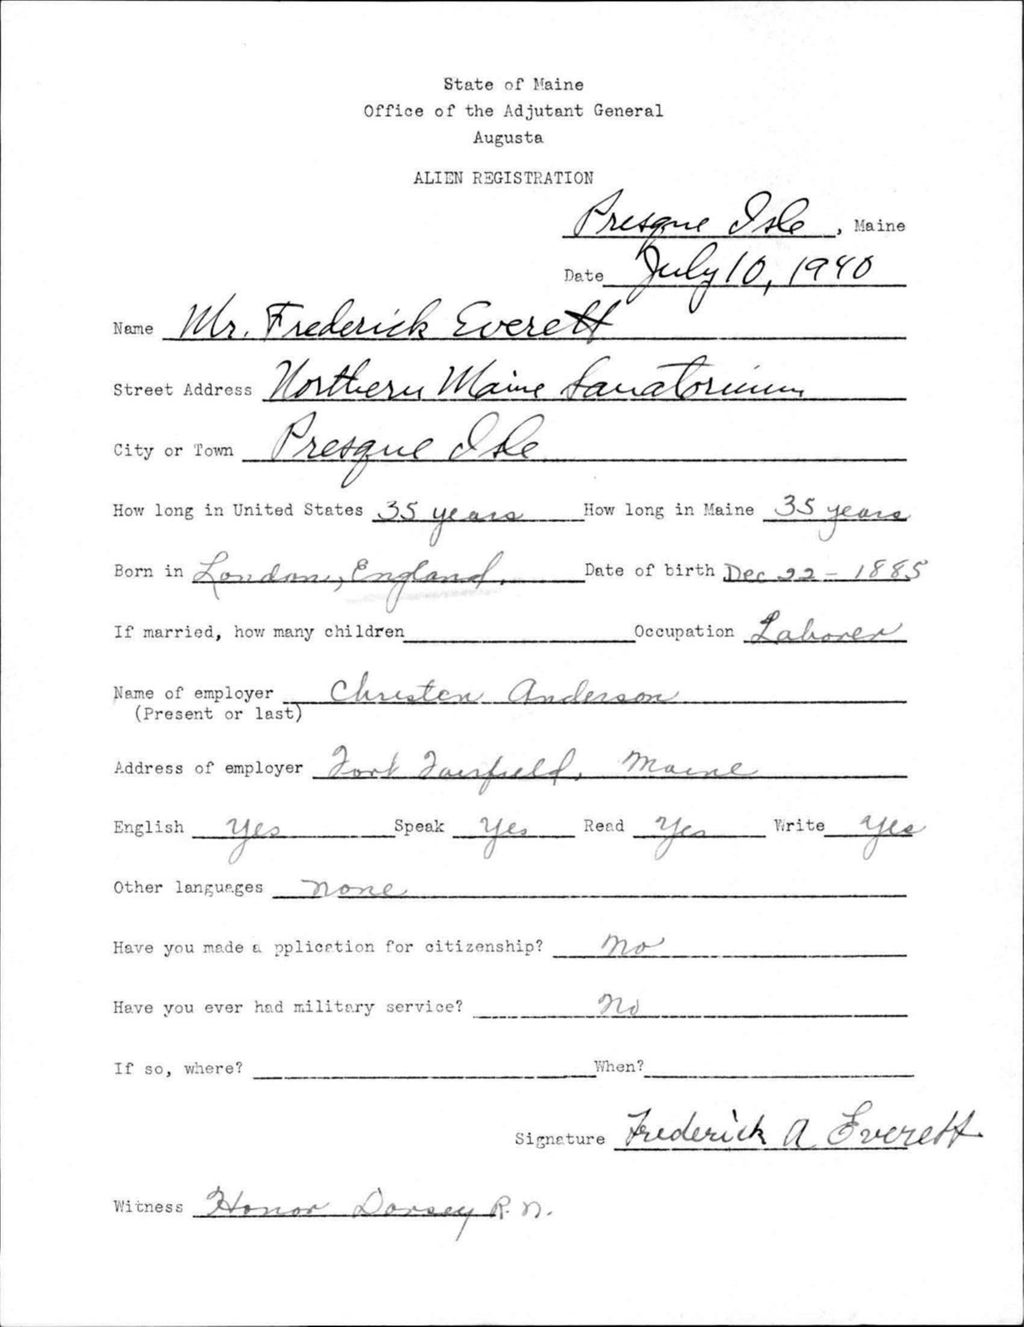 State of Maine
Office of the Adjutant General
Augusta
ALIEN REGISTRATION
Presque Isle, Maine
Date July 10, 1940
Name Mr. Frederick Everett
Street Address Northern Maine Sanatorium
City or Town Presque Isle
How long in United States 35 years How long in Maine 35 years
Born in London, England. Date of birth Dec 22 - 1885
If married, how many children Occupation Laborer
Name of employer Christen Anderson
(Present or last)
Address of employer Fort Fairfield, Maine
English Yes Speak Yes Read Yes Write Yes
Other languages none
Have you made a pplication for citizenship? No
Have you ever had military service? No
If so, where? When?
Signature Frederick A Everett
Witness Honor Dorsey R.N.